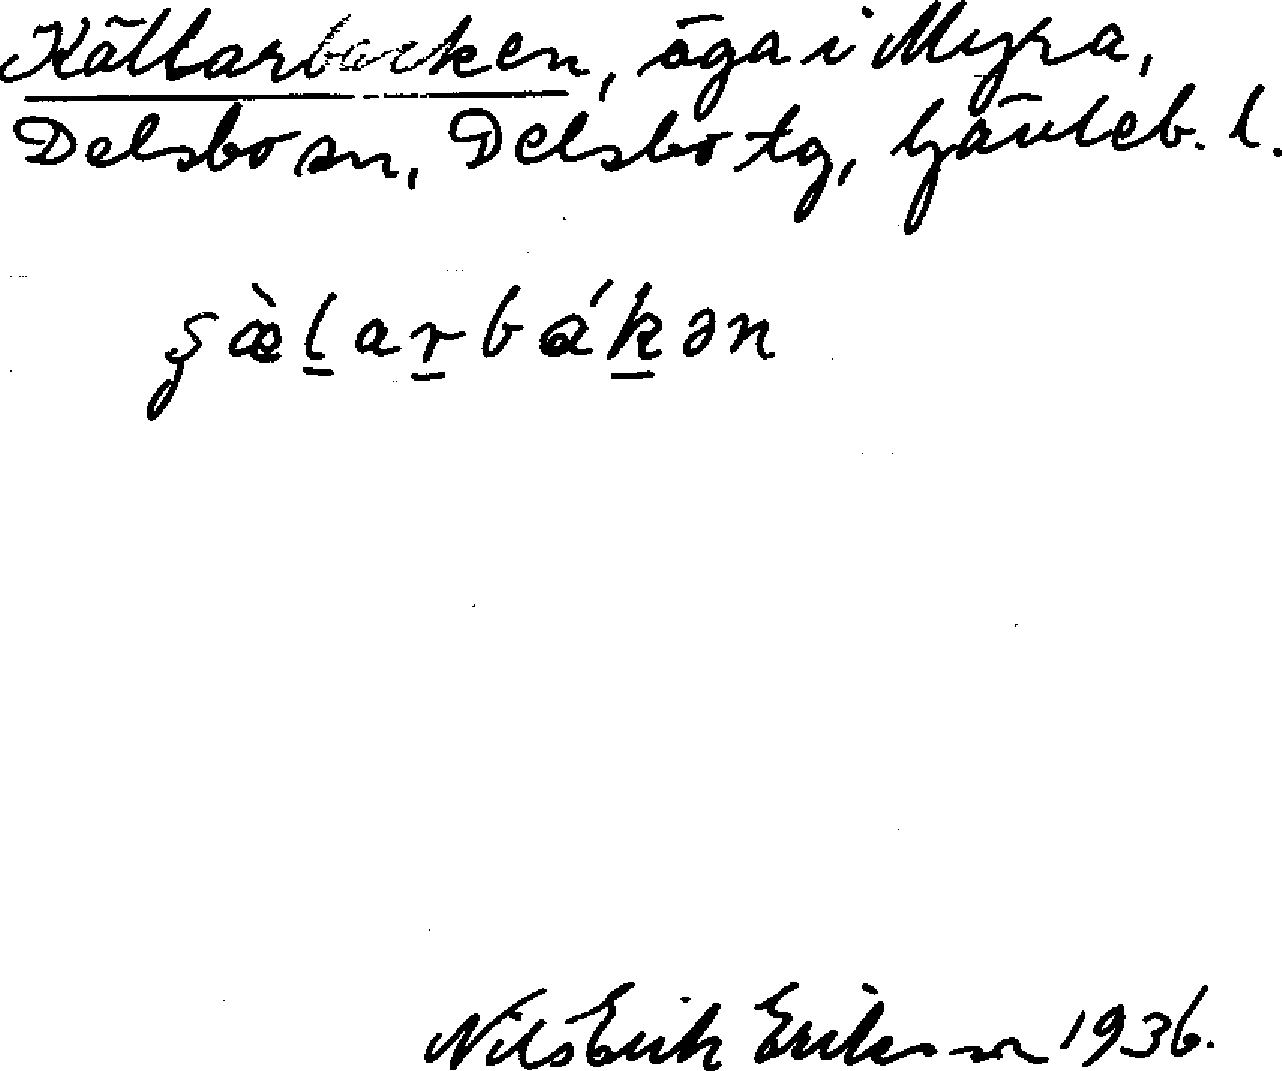 Källarbacken, äga i Myra,
Delsbo sn, Delsbo tg, Gävleb. l.
ʂæ̀l̠ar̠bák̠ən
Nils Erik Eriksson 1936.